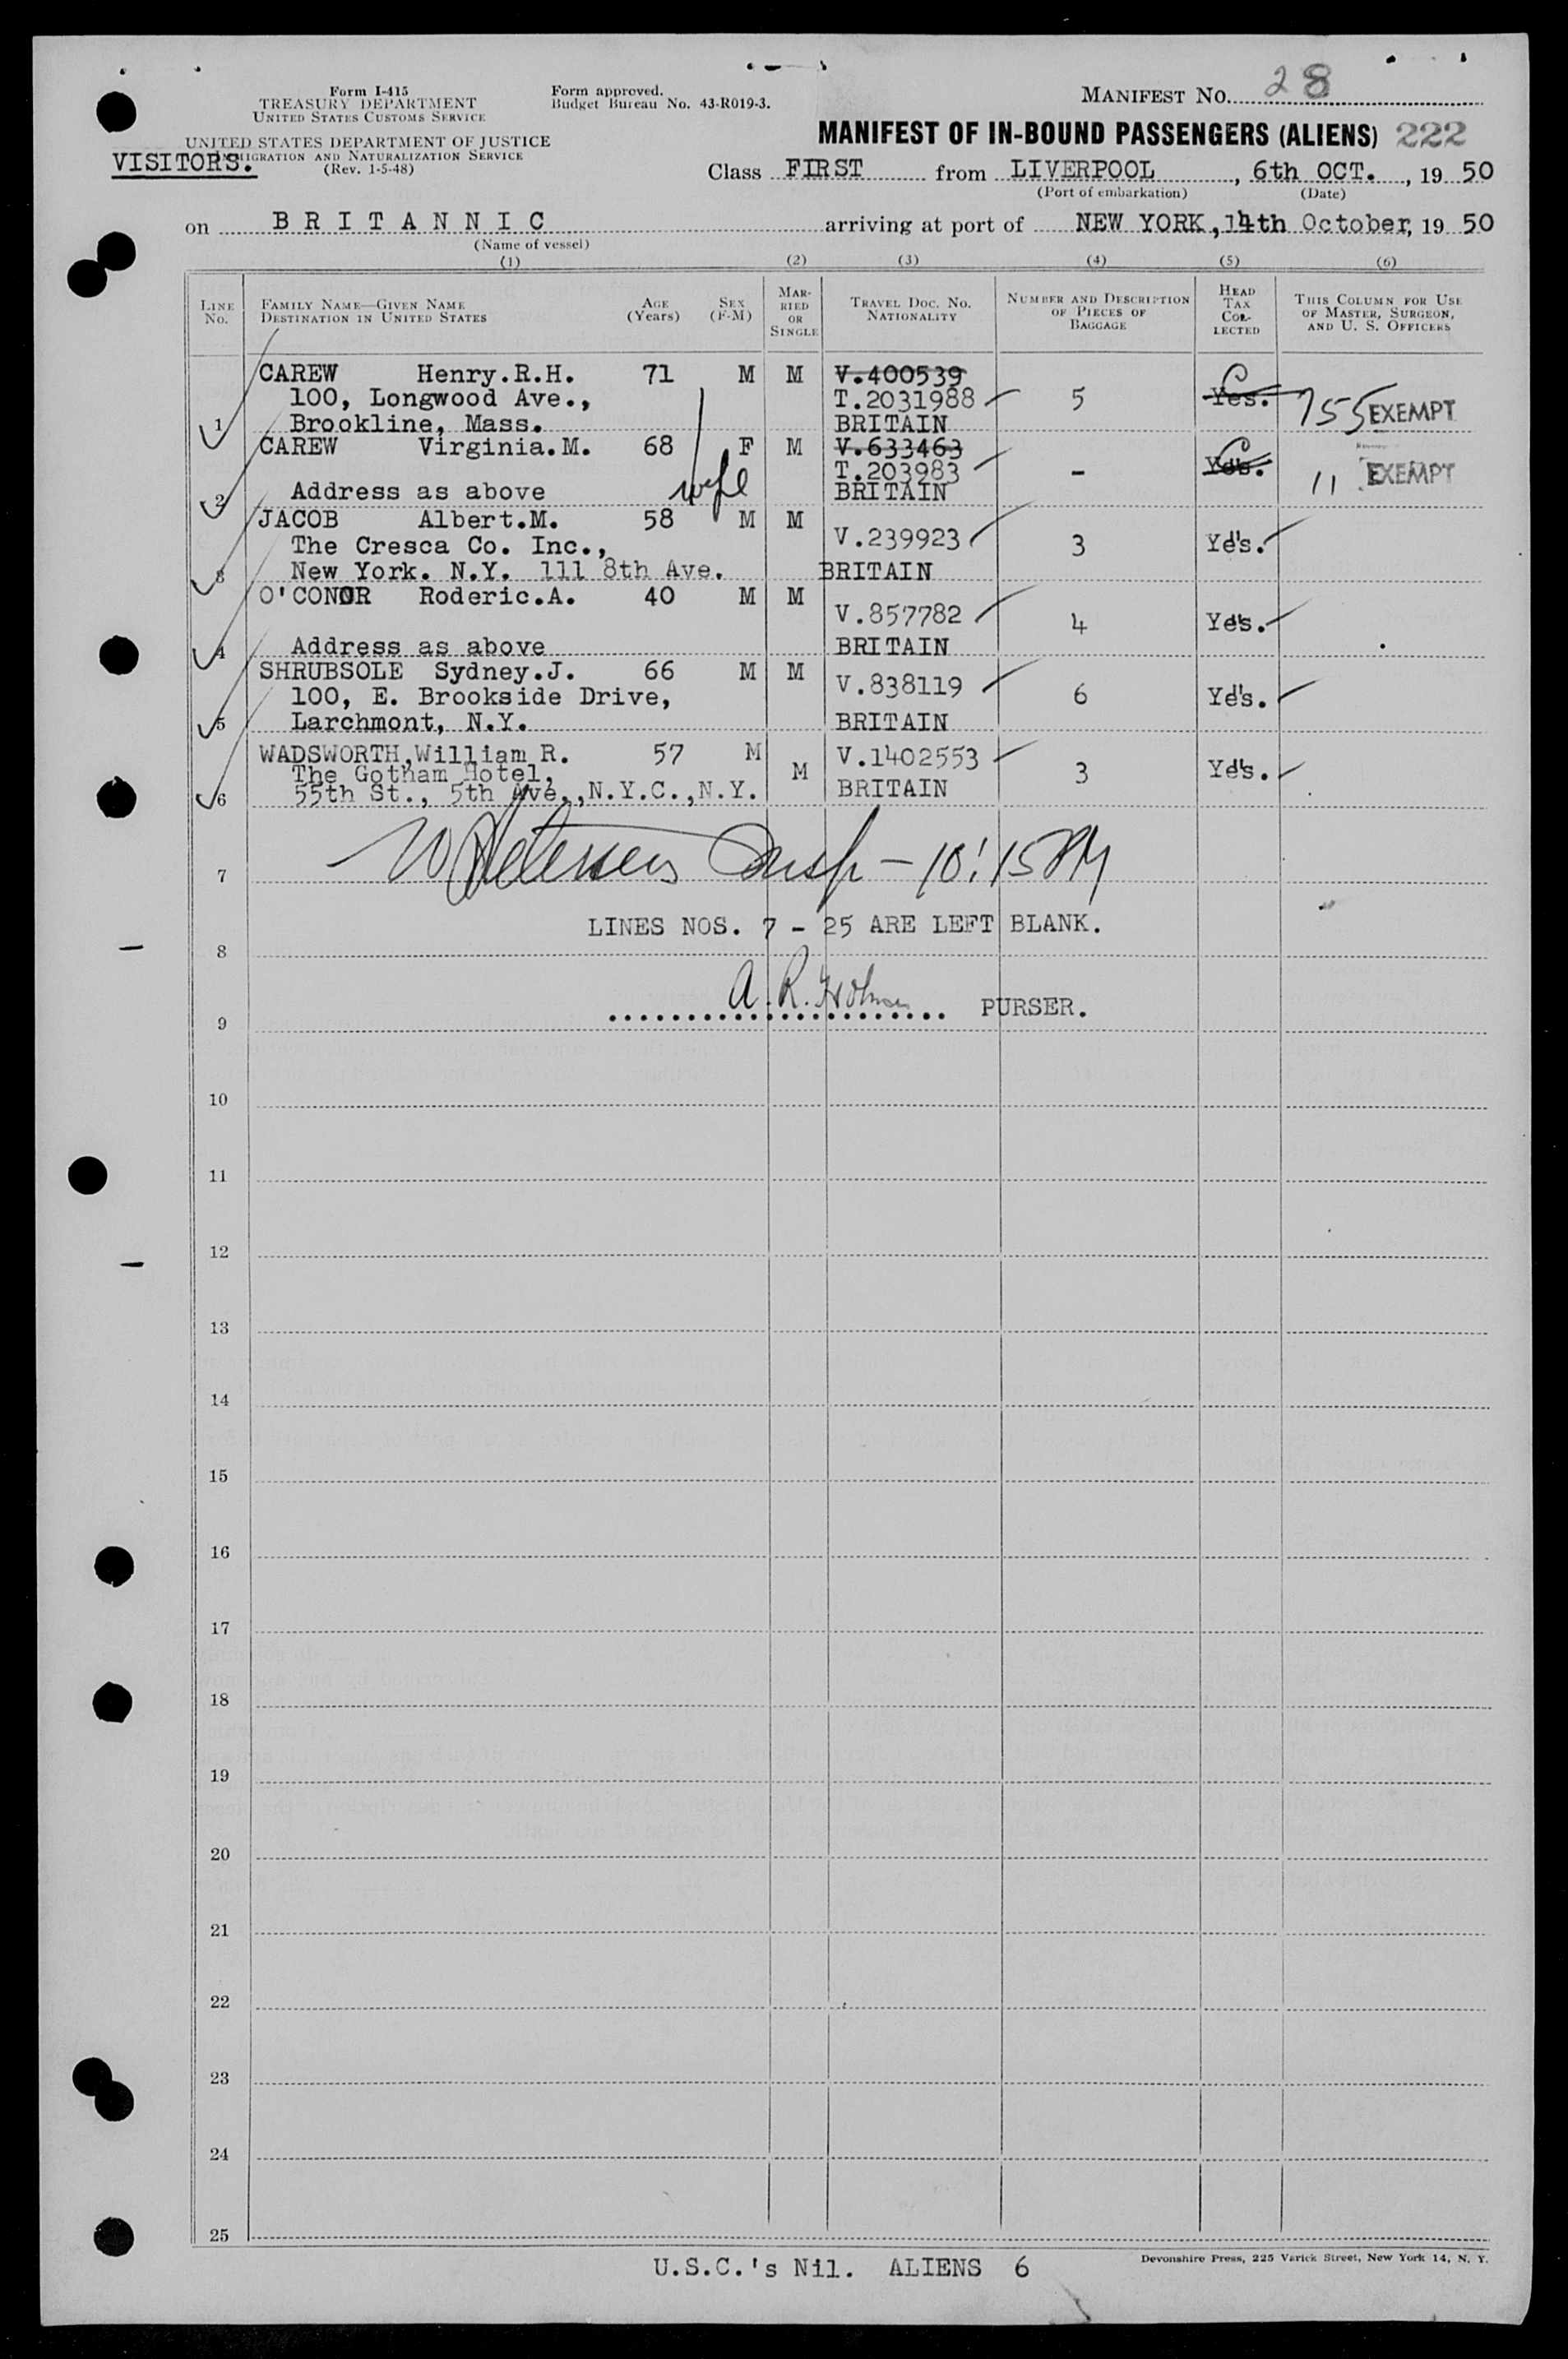 Form I-415
TREASURY DEPARTMENT
UNITED STATES CUSTOMS SERVICE
UNITED STATES DEPARTMENT OF JUSTICE
IMMIGRATION AND NATURALIZATION SERVICE
(Rev. 1-5-48)
VISITORS.
Form approved.
Budget Bureau No. 43-R019-3.
MANIFEST NO. 28
MANIFEST OF IN-BOUND PASSENGERS (ALIENS) 222
Class FIRST from LIVERPOOL, 6th OCT., 19 50
(Port of embarkation) (Date)
on BRITANNIC arriving at port of NEW YORK, 14th October, 19 50
(Name of vessel)
(1) (2) (3) (4) (5) (6)
LINE NO. FAMILY NAME—GIVEN NAME DESTINATION IN UNITED STATES AGE (Years) SEX (F-M) MARRIED OR SINGLE TRAVEL DOC. NO. NATIONALITY NUMBER AND DESCRIPTION OF PIECES OF BAGGAGE HEAD TAX COLLECTED THIS COLUMN FOR USE OF MASTER, SURGEON, AND U. S. OFFICERS
CAREW Henry.R.H. 71 M M V.400539
100, Longwood Ave., T.2031988 5 Yes. 755 EXEMPT
1 Brookline, Mass. BRITAIN
CAREW Virginia.M. 68 F M V.633463
wife T.203983 - Yes. 11 EXEMPT
2 Address as above BRITAIN
JACOB Albert.M. 58 M M
The Cresca Co. Inc., V.239923 3 Yes.
3 New York. N.Y. 111 8th Ave. BRITAIN
O'CONOR Roderic.A. 40 M M
V.857782 4 Yes.
4 Address as above BRITAIN
SHRUBSOLE Sydney.J. 66 M M
100, E. Brookside Drive, V.838119 6 Yes.
5 Larchmont, N.Y. BRITAIN
WADSWORTH, William R. 57 M M V.1402553
The Gotham Hotel, 3 Yes.
6 55th St., 5th Ave., N.Y.C., N.Y. BRITAIN
7 Insp - 10:15 PM
LINES NOS. 7 - 25 ARE LEFT BLANK.
8
A. R. PURSER.
9
10
11
12
13
14
15
16
17
18
19
20
21
22
23
24
25
U.S.C.'s Nil. ALIENS 6
Devonshire Press, 225 Varick Street, New York 14, N. Y.